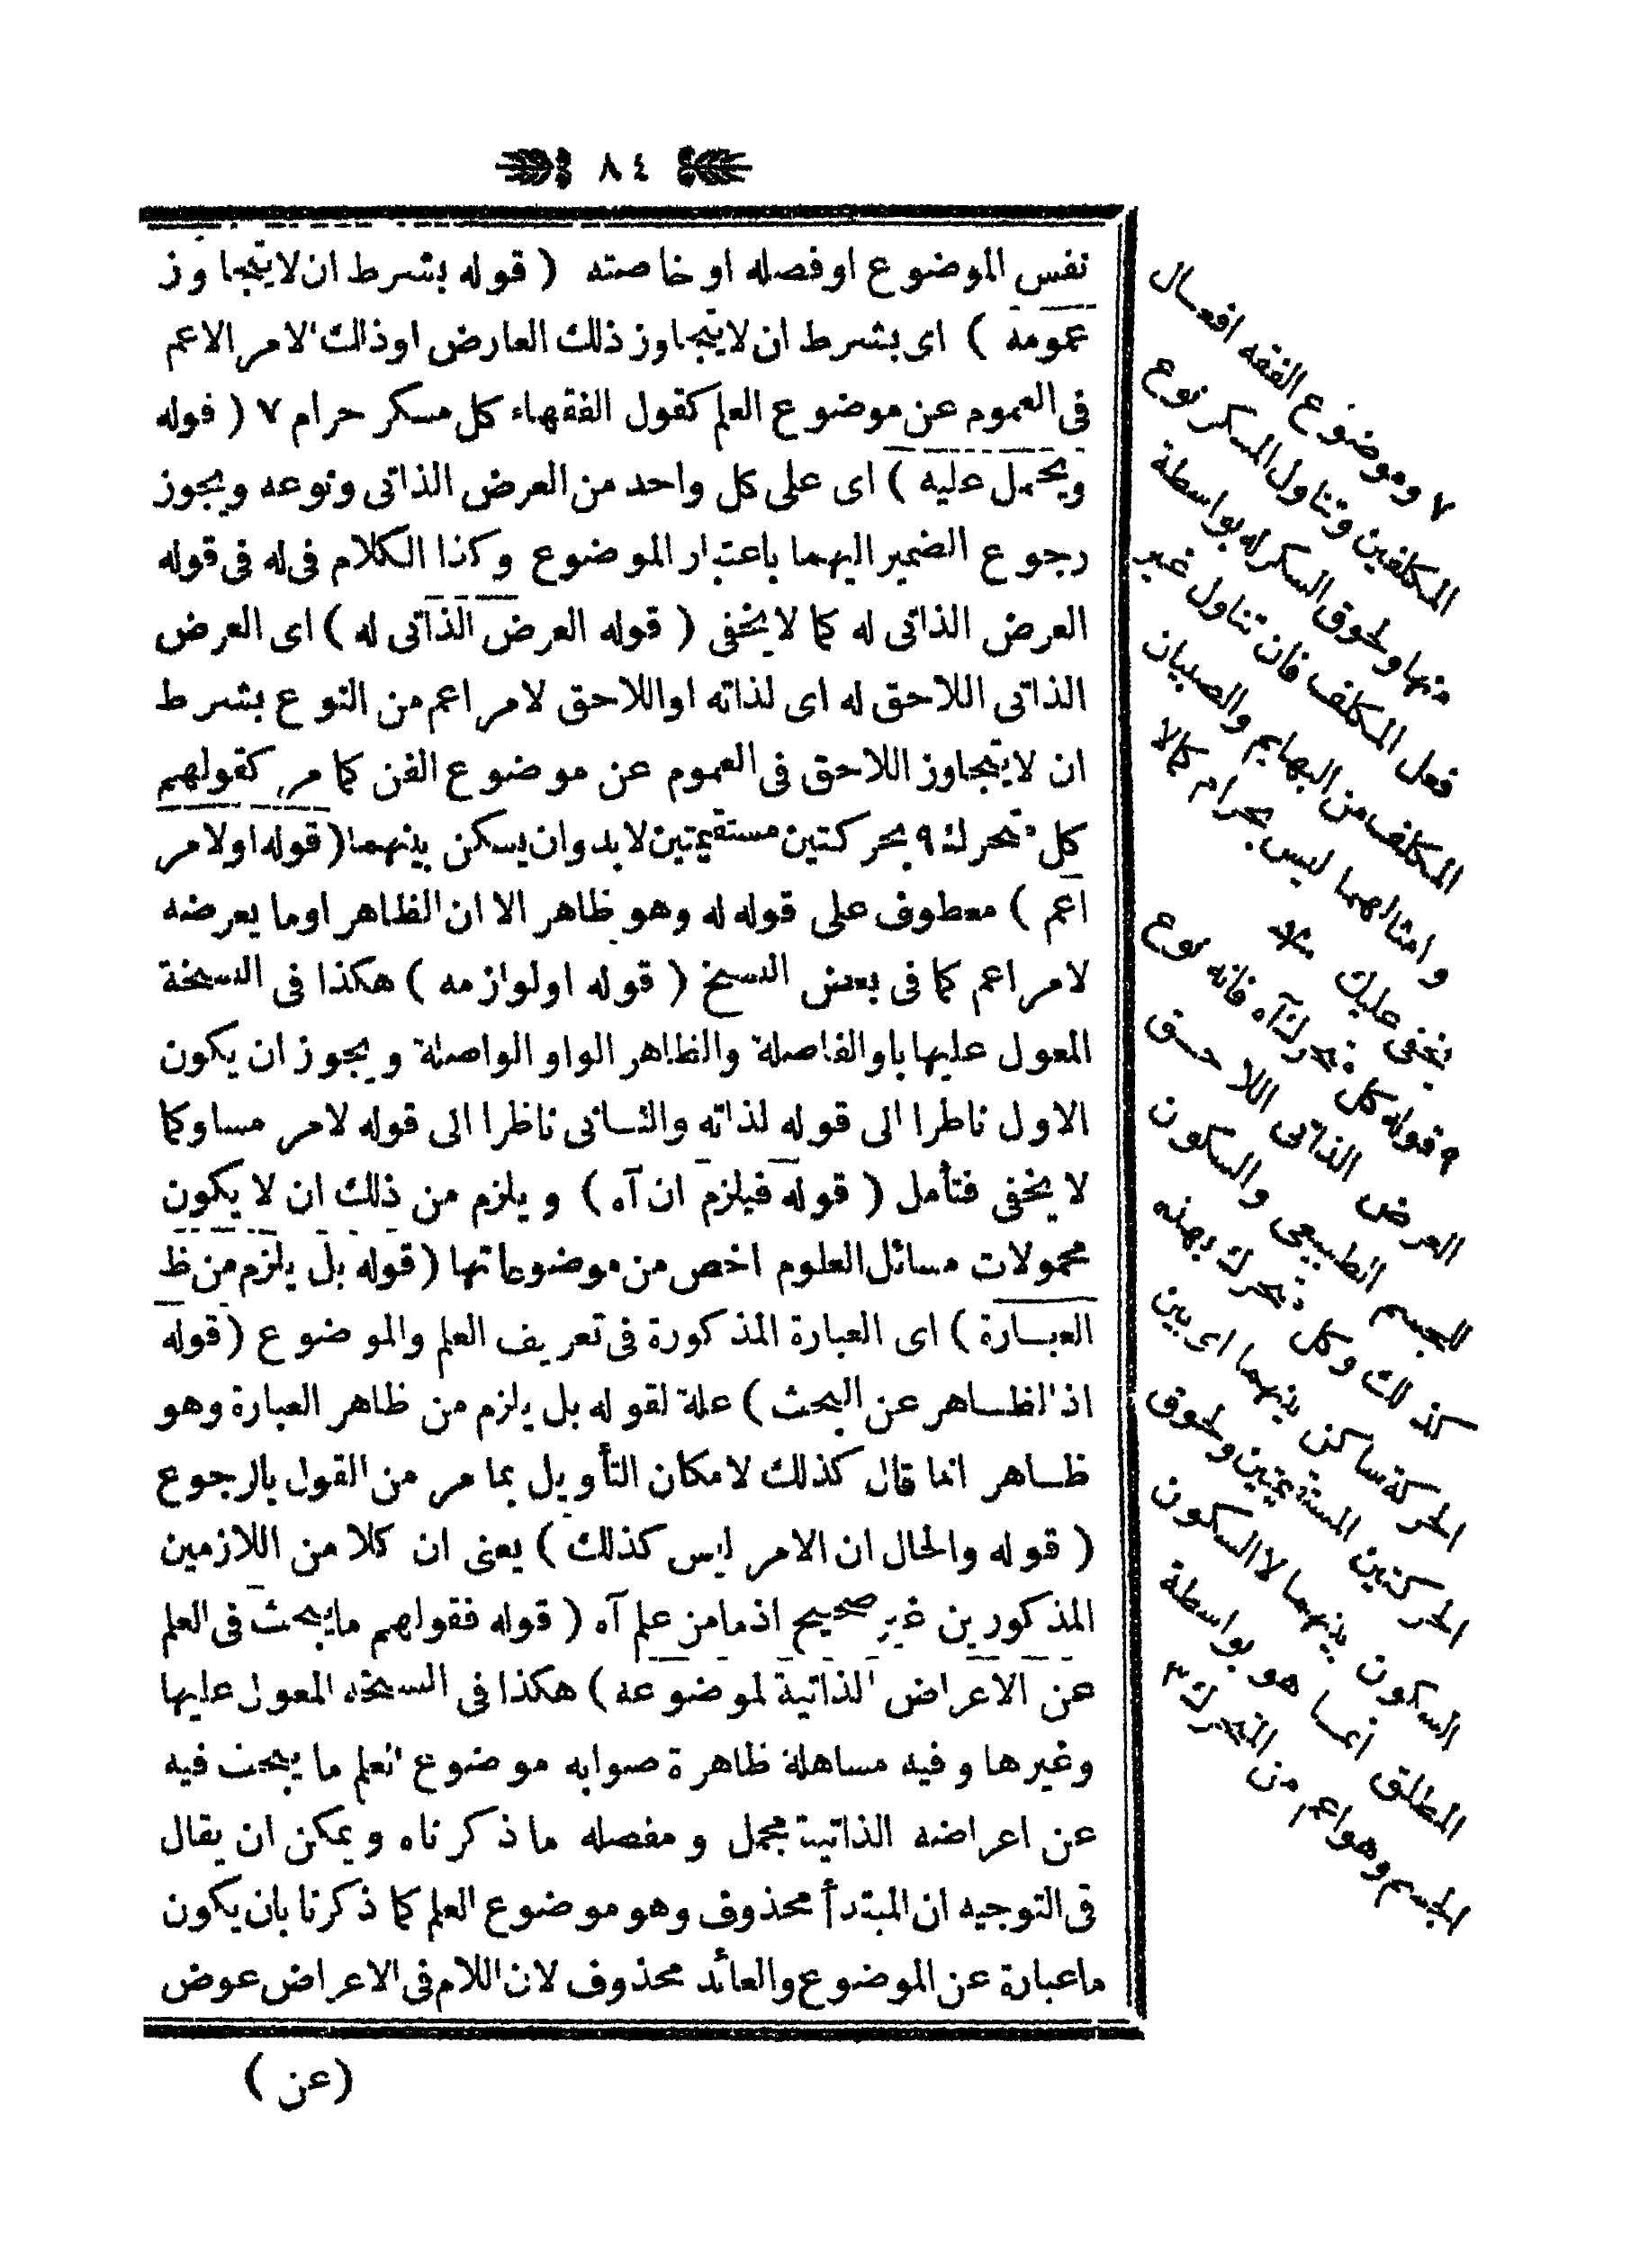 ٨٤
نفس الموضوع اوفصله او خاصته ( قوله بشرط ان لا يتجاوز
عمومه ) اى بشرط ان لا يتجاوز ذلك العارض او ذلك الامر الاعم
فى العموم عن موضوع العلم كقول الفقهاء كل مسكر حرام ٧ ( قوله
ويحمل عليه ) اى على كل واحد من العرض الذاتى ونوعه ويجوز
رجوع الضمير اليهما باعتبار الموضوع وكذا الكلام فى له فى قوله
العرض الذاتى له كما لا يخفى ( قوله العرض الذاتى له ) اى العرض
الذاتى اللاحق له اى لذاته او اللاحق لامر اعم من النوع بشرط
ان لا يتجاوز اللاحق فى العموم عن موضوع الفن كما مر كقولهم
كل متحرك ٩ بحركتين مستقيمتين لابد وان يسكن بينهما ( قوله اولامر
اعم ) معطوف على قوله له وهو ظاهر الا ان الظاهر اوما يعرضه
لامر اعم كما فى بعض النسخ ( قوله اولوازمه ) هكذا فى النسخة
المعول عليها باو الفاصلة والظاهر الواو الواصلة ويجوز ان يكون
الاول ناظرا الى قوله لذاته والثانى ناظرا الى قوله لامر مساو كما
لا يخفى فتأمل ( قوله فيلزم ان آه ) ويلزم من ذلك ان لا يكون
محمولات مسائل العلوم اخص من موضوعاتها ( قوله بل يلزم من ظ
العبارة ) اى العبارة المذكورة فى تعريف العلم والموضوع ( قوله
اذ الظاهر عن البحث ) علة لقوله بل يلزم من ظاهر العبارة وهو
ظاهر انما قال كذلك لامكان التأويل بما مر من القول بالرجوع
( قوله والحال ان الامر ليس كذلك ) يعنى ان كلا من اللازمين
المذكورين غير صحيح اذ ما من علم آه ( قوله فقولهم ما يبحث فى العلم
عن الاعراض الذاتية لموضوعه ) هكذا فى النسخه المعول عليها
وغيرها وفيه مساهلة ظاهرة صوابه موضوع العلم ما يبحث فيه
عن اعراضه الذاتية مجمل ومفصله ما ذكرناه ويمكن ان يقال
فى التوجيه ان المبتدأ محذوف وهو موضوع العلم كما ذكرنا بان يكون
ما عبارة عن الموضوع والعائد محذوف لان اللام فى الاعراض عوض
( عن )
٧ وموضوع الفقه افعال
المكلفين وتناول المسكر نوع
منها ولحوق السكر له بواسطة
فعل المكلف فان تناول غير
المكلف من البهايم والصبيان
وامثالهما ليس بحرام كما لا
يخفى عليك مثلا
٩ قوله كل متحرك آه فانه نوع
العرض الذاتى اللاحق
للجسم الطبيعى والسكون
كذلك وكل متحرك بهذه
الحركة ساكن بينهما اى بين
الحركتين المستقيمتين ولحوق
السكون بينهما لا السكون
المطلق انما هو بواسطة
الجسم وهو اعم من المتحرك